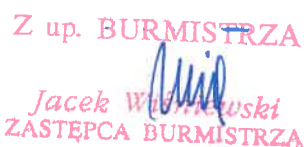 Z up. BURMISTRZA
Jacek Wiśniewski
ZASTĘPCA BURMISTRZA